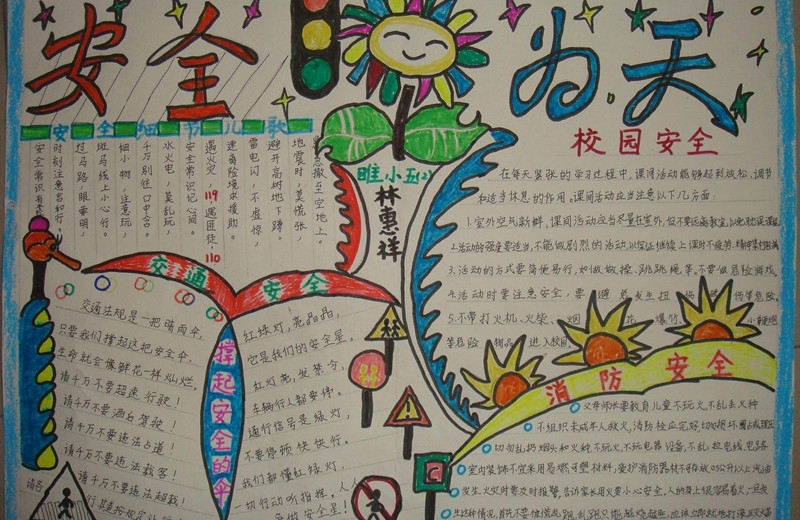 安全为天
安全细节儿歌
地震时，莫慌张，
紧急撤至空地上。
避开高树地下蹲。
雷电闪，不虚惊，
遇火灾 119 遇匪徒：110
安全常识记心间。
水火电，莫乱玩，
千万别往口中含。
细小物，注意玩，
斑马线上小心行。
过马路，眼要明，
时刻注意
安全常识有
睢小五(2)
林惠祥
校园安全
在每天紧张的学习过程中，课间活动能够起到放松、调节
和适当休息的作用。课间活动应当注意以下几方面：
1.室外空气新鲜，课间活动应当尽量在室外，但不要远离教室，以免耽误
2.活动的强度要适当，不能做剧烈的活动，以保证继续上课时不疲劳、精神
3.活动的方式要简便易行，如做做操、跳跳绳等。不要做危险游戏。
4.活动时要注意安全，要避免发生扭伤 伤等危险。
5.不带打火机、火柴、烟花 爆竹、小
等危险物品 进入校园。
交通安全
交通法规是一把晴雨伞，
只要我们撑起这把安全伞，
生命就会像鲜花一样灿烂，
请千万不要超速行驶！
请千万不要酒后驾驶！
请千万不要违法占道！
请千万不要违法载客！
请千万不要违法超载！
撑起安全的伞
红绿灯，亮晶晶，
它是我们的安全星。
红灯亮，发禁令，
车辆行人都要停。
通行信号是绿灯，
不要停顿快快行。
我们都懂红绿灯，
一切行动听指挥。人人
争做安全星！
消防安全
父母师长要教育儿童不玩火，不乱丢火种
不组织未成年人救火，消防栓应完好，切勿损坏
切勿乱扔烟头和火种，不玩火，不玩电器设备，不乱拉电线、电路
室内装饰不宜采用易燃可塑材料，爱护消防器材
发生火灾时要及时报警，告诉家长用火要小心安全